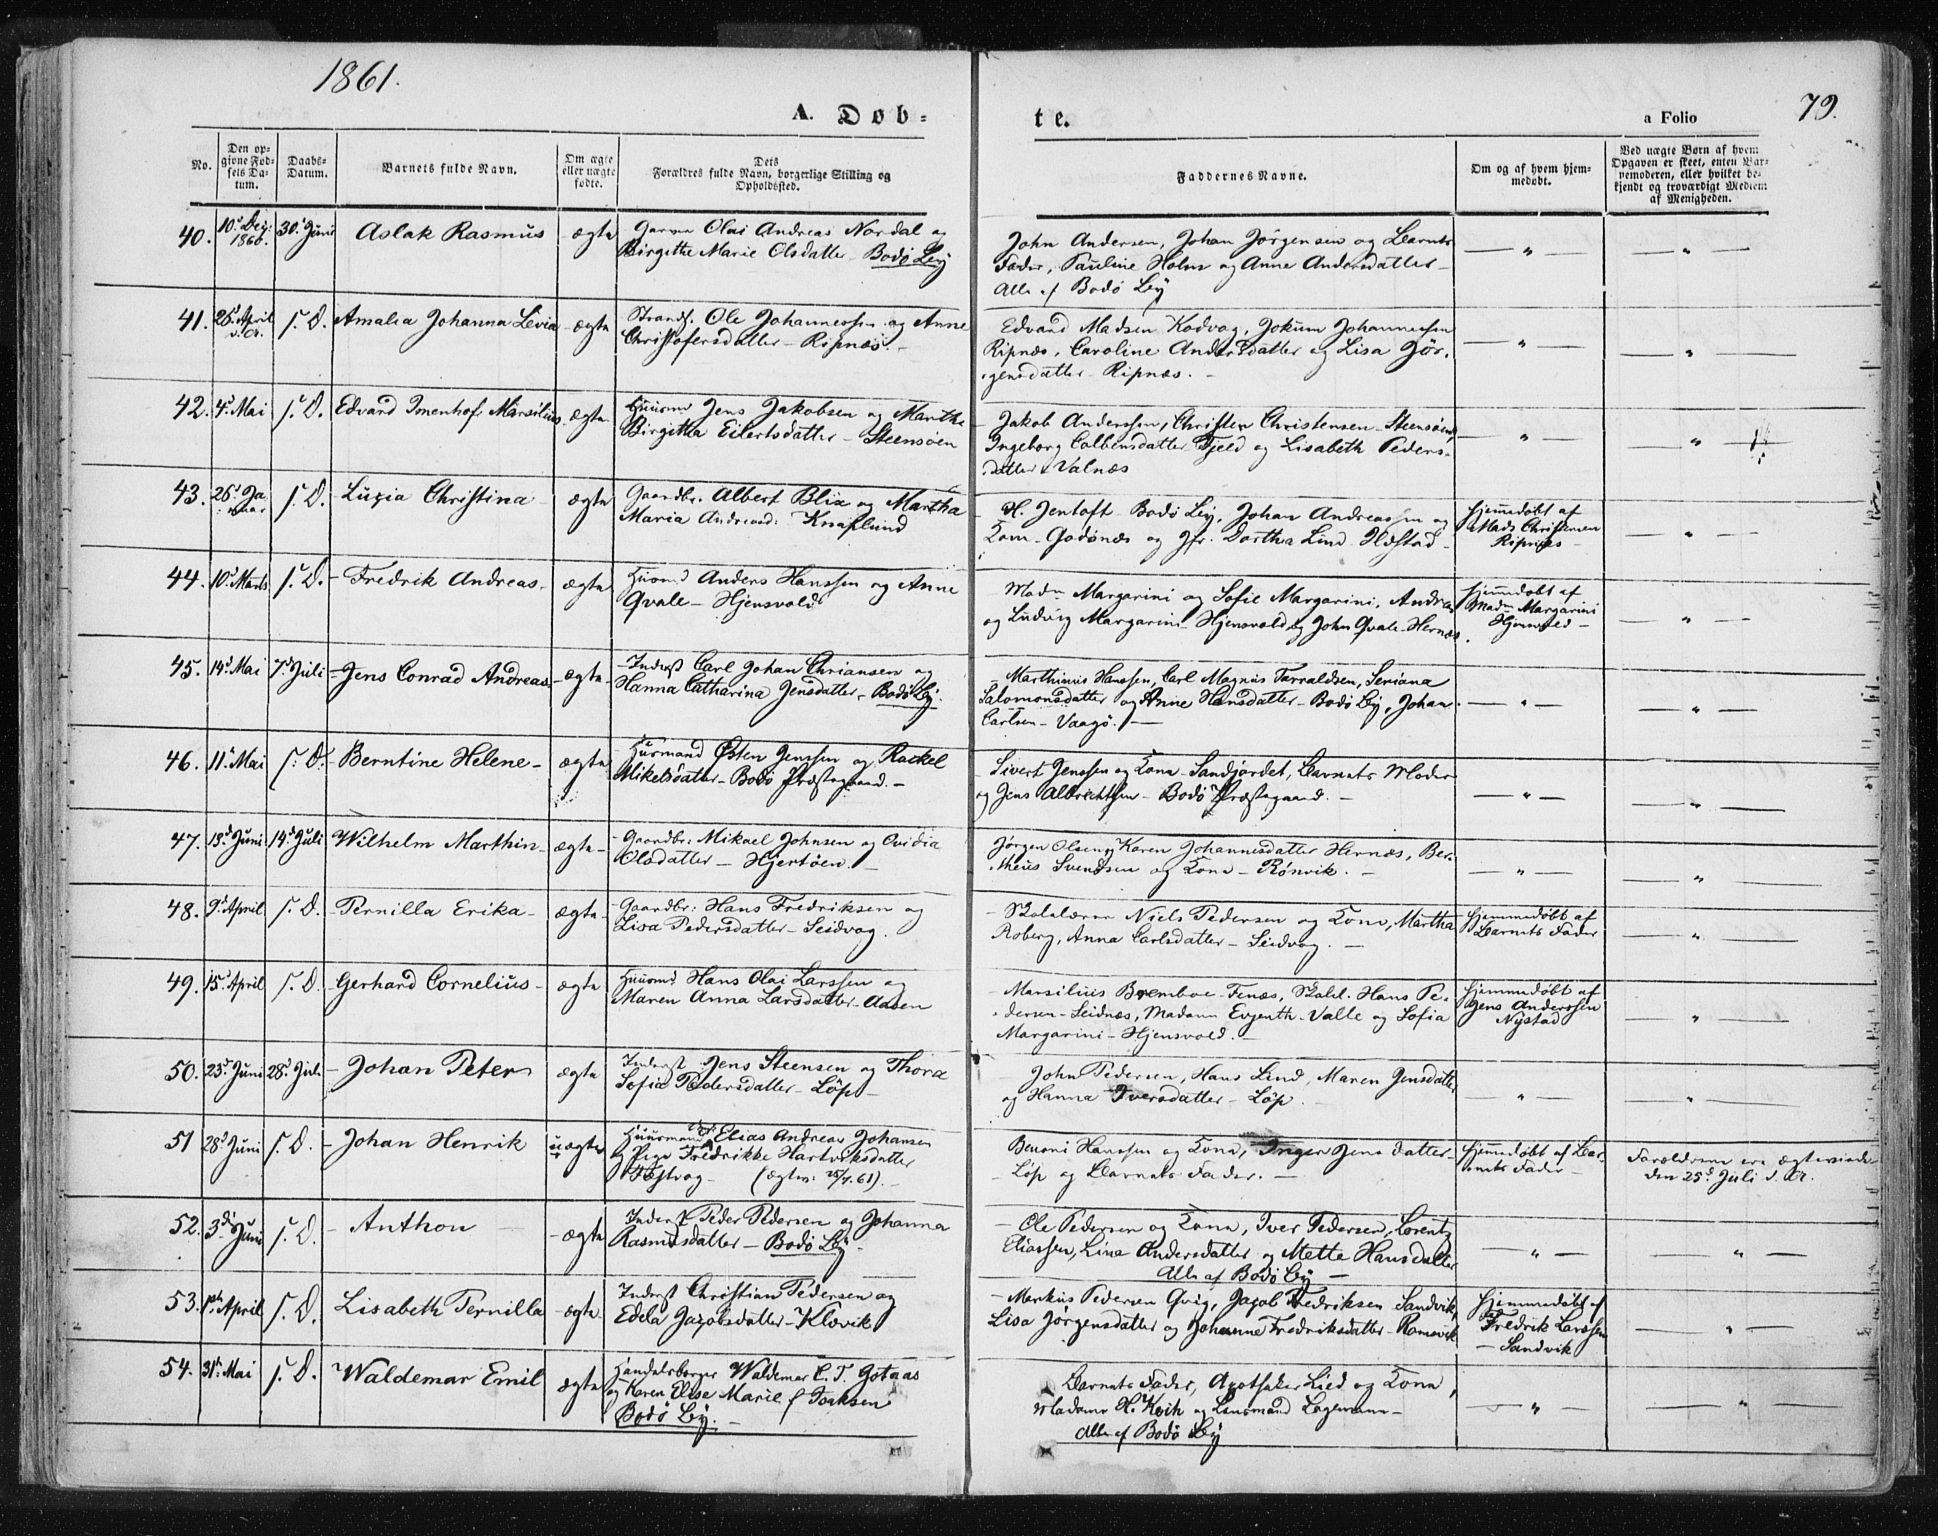 1861.
79.
A. Døb-
te.
a Folio
No.
Den op-
givne Fød-
sels Da-
tum.
Daabs-
Datum.
Barnets fulde Navn.
Om ægte
eller uægte
fødte.
Dets
Forældres fulde Navn, borgerlige Stilling og
Opholdssted.
Faddernes Navne.
Om og af hvem hjem-
medøbt.
Ved uægte Børn af hvem
Opgaven er skeet, enten Bar-
nemoderen, eller hvilket be-
kjendt og troværdigt Medlem
af Menigheden.
40. 10d Decj: 1860. 30d Juni Aslak Rasmus ægte
Garver Olai Andreas Nordal og
Birgitte Marie Olsdatter Bodø By
John Andersen, Johan Jørgensen og Barnets
Fader, Pauline Holm og Anne Andersdatter
Alle af Bodø By
41. 26d April d. Ar. s. D. Amalia Johanna Levia ægte
Strands. Ole Johannessen og Anne
Christofersdatter - Ripnæs. -
Edvard Madsen Kodvag, Jokum Johannessen
Ripnæs, Caroline Andersdatter og Lisa Jør-
gensdatter Ripnæs. -
42. 4d Mai s. D. Edvard Imenhof Marsilius ægte
Huusmd Jens Jakobsen og Marthe
Birgitha Eilertsdatter - Steensøen
Jakob Anderssen, Christen Christensen Steensøen,
Ingeborg Colbensdatter Fjeld og Lisabeth Peders-
datter Valnæs
43. 26d Januar s. D. Luzia Christina ægte
Gaardbr. Albert Blix og Martha
Maria Andreasd: Knaplund
H. Jentoft Bodø By, Johan Andreassen og
Kone - Godønæs og Jfr. Dorthea Lind Ilstad
Hjemmedøbt af
Mads Christensen
Ripnæs
44. 10d Marts s. D. Fredrik Andreas ægte
Huusmd Anders Hanssen og Anne
Qvale - Hjensvold
Madm Margarini og Sofie Margarini, Andreas
og Ludvig Margarini Hjensvold og John Qvale Hernæs.
Hjemmedøbt af
Madm Margarini
Hjensvold
45. 14d Mai 7d Juli Jens Conrad Andreas ægte
Inderst Carl Johan Chriansen og
Hanna Catharina Jensdatter - Bodø By.
Marthinus Hanssen, Carl Magnus Tarraldsen, Seriana
Salomonsdatter og Anne Hansdatter - Bodø By, Johan
Carlsen - Vaagø.
46. 11d Mai s. D. Berntine Helene ægte
Husmand Østen Jenssen og Rackel
Mikelsdatter - Bodø Præstegaard. -
Sivert Jenssen og Kone - Sandjordet, Barnets Moder
og Jens Albrechtsen - Bodø Præstegaard. -
47. 13d Juni 14d Juli Wilhelm Marthin ægte
Gaardbr: Mikael Johnsen og Ovidia
Olsdatter - Hjertøen. -
Jørgen Olsen, Karen Johannesdatter Hernæs, Ber-
theus Svendsen og Kone - Rønvik. -
48. 9d April s. D. Pernilla Erika ægte
Gaardbr: Hans Fredriksen og
Lisa Pedersdatter - Seidvag.
Skolelærer Niels Pedersen og Kone, Martha
Roberg, Anna Carlsdatter - Seidvag. -
Hjemmedøbt af
Barnets Fader
49. 15d April s. D. Gerhard Cornelius ægte
Huusmd Hans Olai Larssen og
Maren Anna Larsdatter - Aasen
Marsilius Bremboe - Fenæs, Skolel. Hans Pe-
dersen - Seidnæs, Madam Evjenth - Valle og Sofia
Margarini - Hjensvold. -
Hjemmedøbt af
Jens Anderssen
Nystad
50. 23d Juni 28d Juli Johan Peter ægte
Inderst Jens Steensen og Thora
Sofia Pedersdatter - Løp -
John Pedersen, Hans Lind, Maren Jensdatter
og Hanna Iversdatter - Løp.
51 28d Juni s. D. Johan Henrik uægte
Huusmand Elias Andreas Johansen
og Pige Fredrikke Hartviksdatter
Fæstvog (ægtev: 25/7. 61). -
Benoni Hanssen og Kone, Inger Jensdatter
Løp og Barnets Fader. -
Hjemmedøbt af Bar-
nets Fader
Forældrene ere ægteviede
den 25d Juli d. Ar.
52. 3d Juni s. D. Anthon ægte
Inderst Peder Pedersen og Johanna
Rasmusdatter - Bodø By -
Ole Pedersen og Kone, Iver Pedersen, Lorentz
Eliassen, Line Andersdatter og Mette Hansdatter
Alle af Bodø By -
53. 1ste April s. D. Lisabeth Pernilla ægte
Inderst Christian Pedersen og
Edda Jacobsdatter - Kløvik
Markus Pedersen Qvig, Jacob Fredriksen Sandvik,
Lisa Jørgensdatter og Johanne Fredriksdatter - Ramsvik
Hjemmedøbt af
Fredrik Larssen
Sandvik
54. 31d Mai s. D. Waldemar Emil ægte
Handelsborger Waldemar C. T. Gotaas
og Karen Elise Marie f Torksen
Bodø By. -
Barnets Fader, Apotheker Lied og Kone,
Madame H. Koch og Lensmand Lagemann
Alle af Bodø By